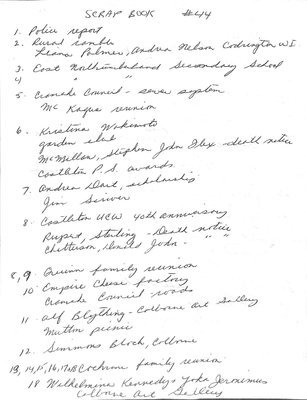 SCRAP BOOK #44
1. Police report
2. Rural ramble
Leana Palmer, Andrea Nelson Codrington W I
3. East Northumberland Secondary School
4 " "
5. Cramahe Council - sewer system
Mc Kague reunion
6. Kristina Wakimoto
garden club
McMillan, Stephen John Alex - death notice
Castleton P. S. awards
7. Andrea Dart, scholarship
Jim Scriver
8. Castleton UCW 40th anniversary
Rupert, Sterling - Death notice
Chitterson, Donald John - " "
8, 9 Quinn family reunion
10 Empire Cheese factory
Cramahe Council - roads
11. Alf Blything - Colborne Art Gallery
Mutton picnic
12. Simmons Block, Colborne
13, 14, 15, 16, 17, 18 Cochrane family reunion
18 Wilhelmina Kennedy, Joka Jeronimus
Colborne Art Gallery